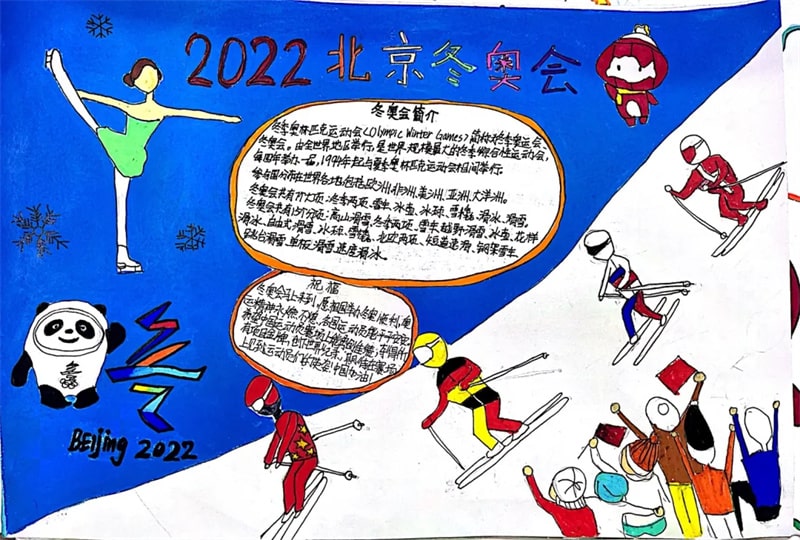 2022北京冬奥会
冬奥会简介
冬季奥林匹克运动会(Olympic Winter Games)简称为冬季奥运会、
冬奥会。由全世界地区举行,是世界规模最大的冬季综合性运动会,
每四年举办一届,1994年起与夏季奥林匹克运动会相间举行。
参与国分布在世界各地,包括欧洲、非洲、美洲、亚洲、大洋洲。
冬奥会共有7大项:冬季两项、雪车、冰壶、冰球、雪橇、滑冰、滑雪。
冬奥会共有15个分项:高山滑雪、冬季两项、雪车、越野滑雪、冰壶、花样
滑冰、自由式滑雪、冰球、雪橇、北欧两项、短道速滑、钢架雪车、
跳台滑雪、单板滑雪、速度滑冰。
祝福
冬奥会马上来到,愿祖国举办冬奥顺利,奥
运精神永恒不熄
上
运动员们
中国加油!
BEijing 2022